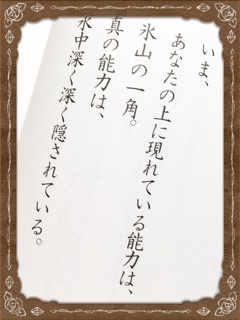 いま、
あなたの上に現れている能力は、
氷山の一角。
真の能力は、
水中深く深く隠されている。